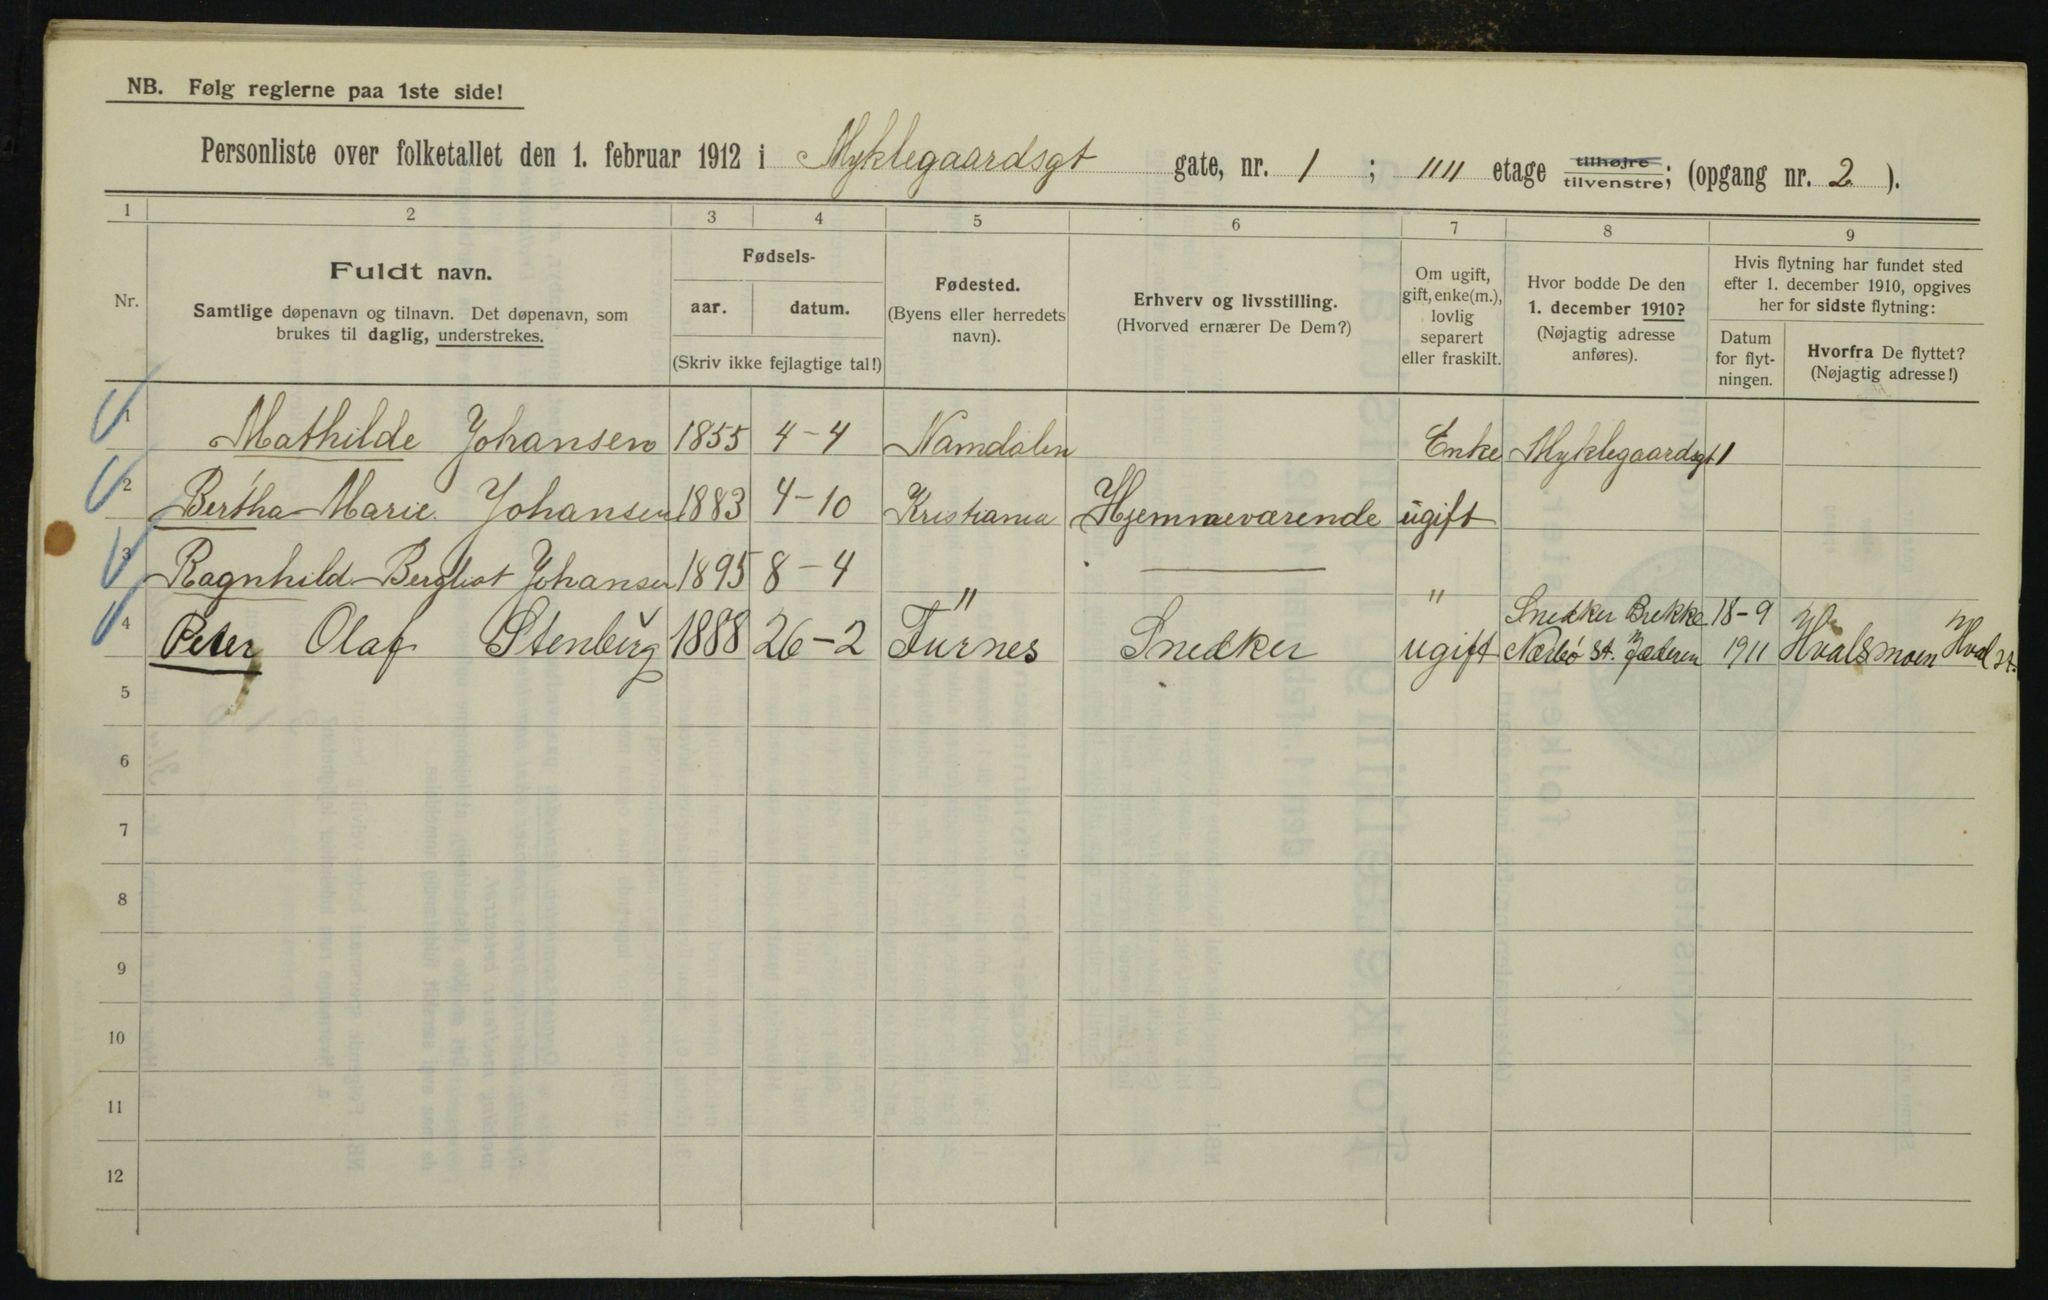 NB. Følg reglerne paa 1ste side!
Personliste over folketallet den 1. februar 1912 i Myklegaardsgt gate, nr. 1 ; IIII etage tilhøjre tilvenstre; (opgang nr. 2 ).
1 2 3 4 5 6 7 8 9
Nr.
Fuldt navn.
Samtlige døpenavn og tilnavn. Det døpenavn, som
brukes til daglig, understrekes.
Fødsels-
aar. datum.
(Skriv ikke fejlagtige tal!)
Fødested.
(Byens eller herredets
navn).
Erhverv og livsstilling.
(Hvorved ernærer De Dem?)
Om ugift,
gift, enke(m.),
lovlig
separert
eller fraskilt.
Hvor bodde De den
1. december 1910?
(Nøjagtig adresse
anføres).
Hvis flytning har fundet sted
efter 1. december 1910, opgives
her for sidste flytning:
Datum
for flyt-
ningen.
Hvorfra De flyttet?
(Nøjagtig adresse!)
1 Mathilde Johansen 1855 4-4 Namdalen Enke Myklegaardsgt 1
2 Bertha Marie Johansen 1883 4-10 Kristiania Hjemmeværende ugift
3 Ragnhild Bergliot Johansen 1895 8-4 " — "
4 Peter Olaf Stenberg 1888 26-2 Furnes Snedker ugift Snedker Brekke Nærbø st. Jæderen 18-9 1911 Hvalsmoen Hval st.
5
6
7
8
9
10
11
12